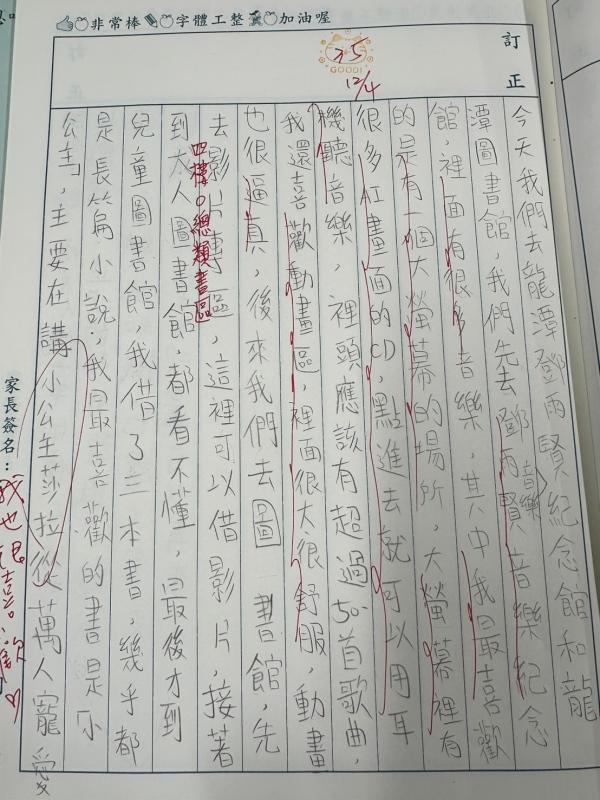 👍🍎非常棒✏️🍎字體工整🍎加油喔
訂正
GOOD!
35
12/4
今天我們去龍潭鄧雨賢紀念館和龍
潭圖書館,我們先去鄧雨賢音樂紀念
音樂
館,裡面有很多音樂,其中我最喜歡
的是有一個大螢幕的場所,大螢幕裡有
很多AI畫面的CD,點進去就可以用耳
機聽音樂,裡頭應該有超過50首歌曲,
我還喜歡動畫區,裡面很大很舒服,動畫
也很逼真,後來我們去圖書館,先
去影片專區,這裡可以借影片,接著
四樓。總類書區
到大人圖書館,都看不懂,最後才到
兒童圖書館,我借了三本書,幾乎都
是長篇小說,我最喜歡的書是「小
公主」,主要在講小公主莎拉從萬人寵愛
家長簽名:
我也很喜歡♡